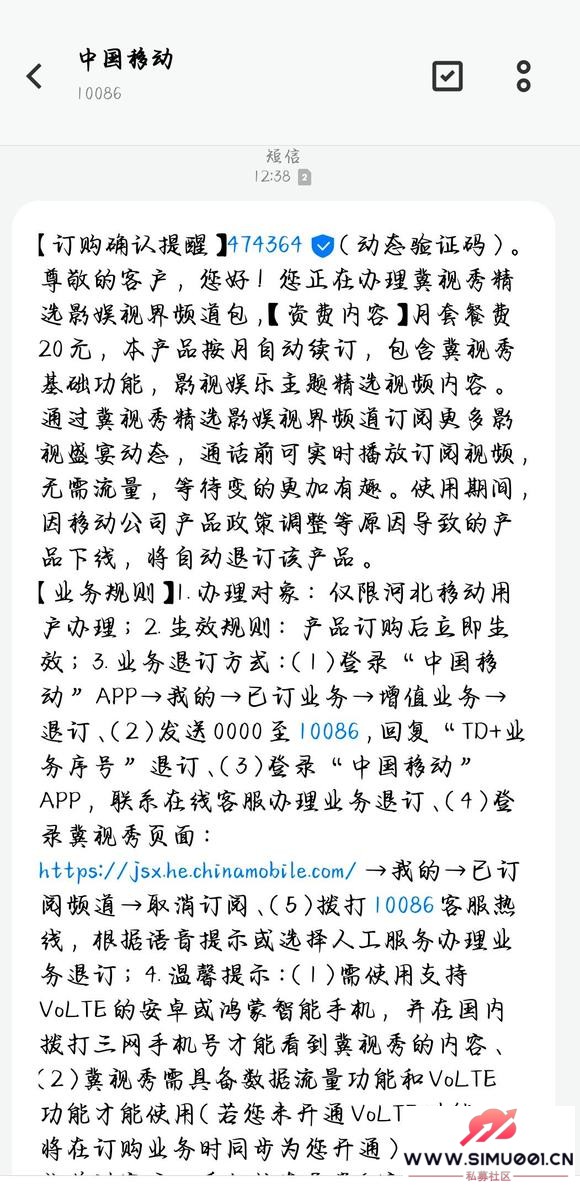 中国移动
10086
短信
12:38 2
【订购确认提醒】474364（动态验证码）。
尊敬的客户，您好！您正在办理冀视秀精
选影娱视界频道包，【资费内容】月套餐费
20元，本产品按月自动续订，包含冀视秀
基础功能，影视娱乐主题精选视频内容。
通过冀视秀精选影娱视界频道订阅更多影
视盛宴动态，通话前可实时播放订阅视频，
无需流量，等待变的更加有趣。使用期间，
因移动公司产品政策调整等原因导致的产
品下线，将自动退订该产品。
【业务规则】1.办理对象：仅限河北移动用
户办理；2.生效规则：产品订购后立即生
效；3.业务退订方式：（1）登录“中国移
动”APP→我的→已订业务→增值业务→
退订、（2）发送0000至10086，回复“TD+业
务序号”退订、（3）登录“中国移动”
APP，联系在线客服办理业务退订、（4）登
录冀视秀页面：
https://jsx.he.chinamobile.com/ →我的→已订
阅频道→取消订阅、（5）拨打10086客服热
线，根据语音提示或选择人工服务办理业
务退订；4.温馨提示：（1）需使用支持
VoLTE的安卓或鸿蒙智能手机，并在国内
拨打三网手机号才能看到冀视秀的内容、
（2）冀视秀需具备数据流量功能和VoLTE
功能才能使用（若您未开通VoLT
将在订购业务时同步为您开通）
WWW.SIMU001.CN
私募社区